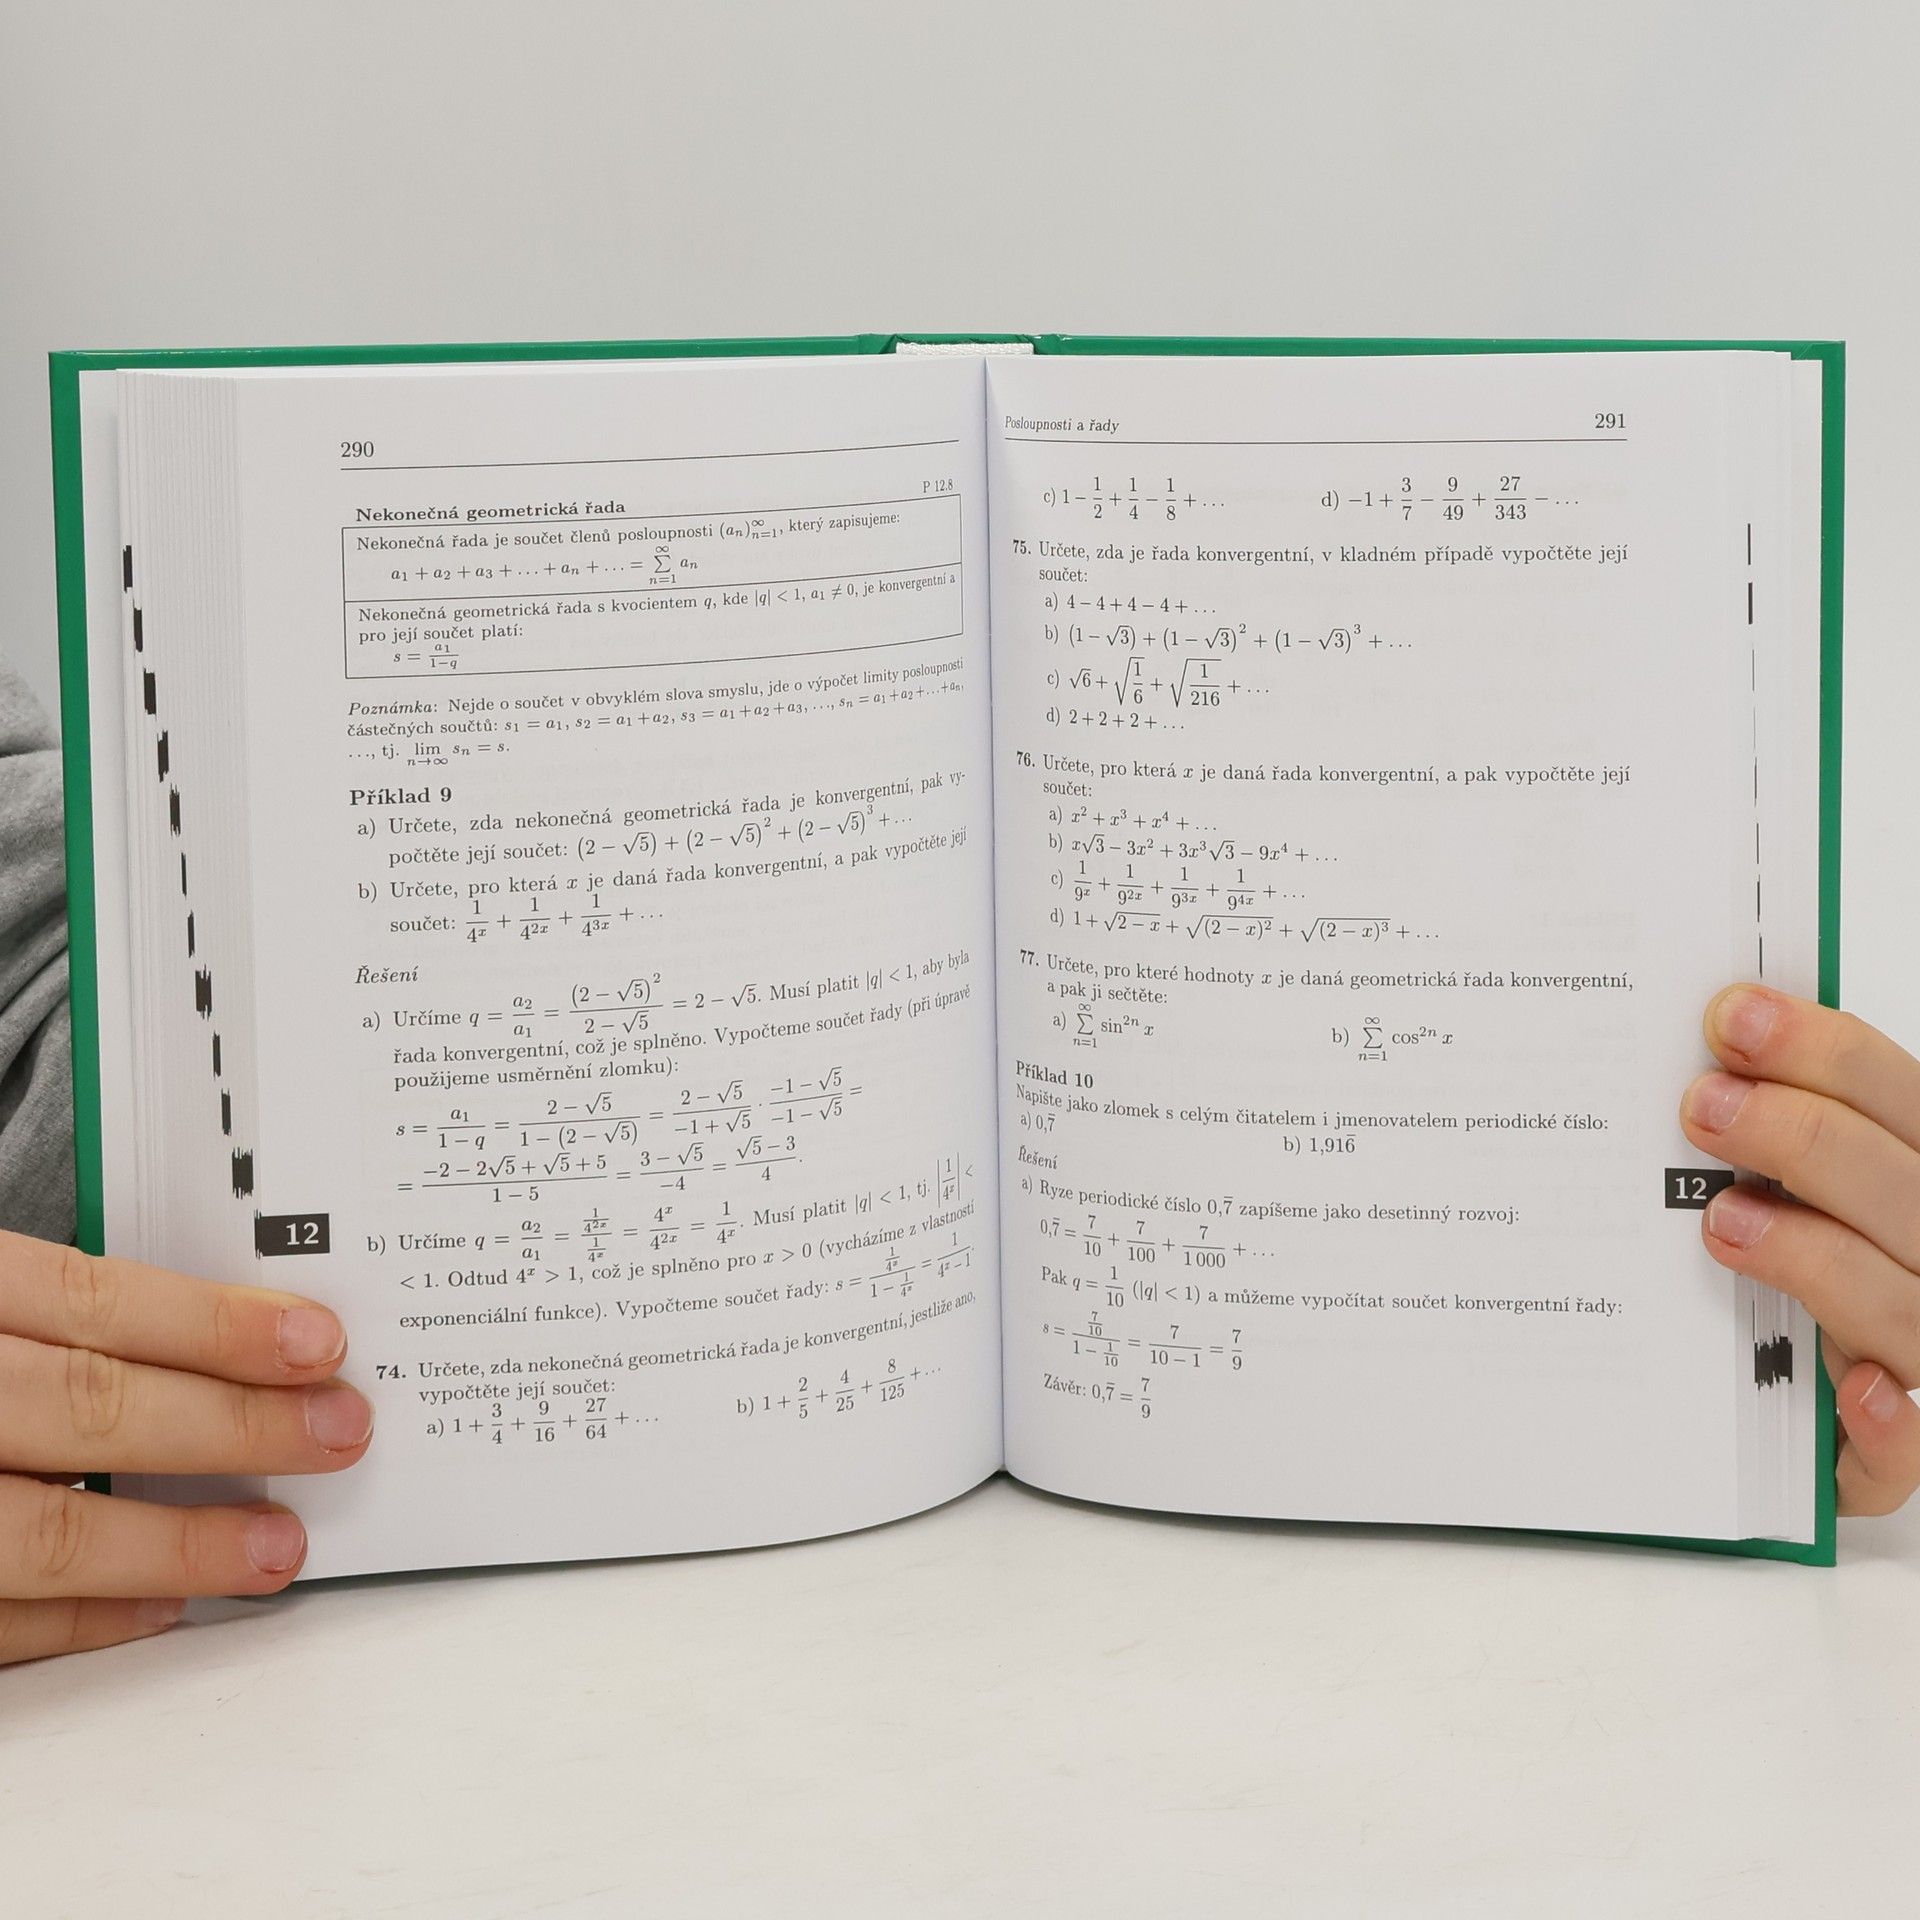 290
Nekonečná geometrická řada P 12.8
Nekonečná řada je součet členů posloupnosti (aₙ)ₙ₌₁^∞, který zapisujeme:
a₁ + a₂ + a₃ + … + aₙ + … = ∑_{n=1}^{∞} aₙ
Nekonečná geometrická řada s kvocientem q, kde |q| < 1, a₁ ≠ 0, je konvergentní a
pro její součet platí:
s = a₁/(1−q)
Poznámka: Nejde o součet v obvyklém slova smyslu, jde o výpočet limity posloupnosti
částečných součtů: s₁ = a₁, s₂ = a₁ + a₂, s₃ = a₁ + a₂ + a₃, …, sₙ = a₁ + a₂ + … + aₙ,
…, tj. lim_{n→∞} sₙ = s.
Příklad 9
a) Určete, zda nekonečná geometrická řada je konvergentní, pak vy-
počtěte její součet: (2 − √5) + (2 − √5)² + (2 − √5)³ + …
b) Určete, pro která x je daná řada konvergentní, a pak vypočtěte její
součet: 1/4ˣ + 1/4²ˣ + 1/4³ˣ + …
Řešení
a) Určíme q = a₂/a₁ = (2 − √5)²/(2 − √5) = 2 − √5. Musí platit |q| < 1, aby byla
řada konvergentní, což je splněno. Vypočteme součet řady (při úpravě
použijeme usměrnění zlomku):
s = a₁/(1 − q) = (2 − √5)/(1 − (2 − √5)) = (2 − √5)/(−1 + √5) · (−1 − √5)/(−1 − √5) =
= (−2 − 2√5 + √5 + 5)/(1 − 5) = (3 − √5)/(−4) = (√5 − 3)/4.
12
b) Určíme q = a₂/a₁ = (1/4²ˣ)/(1/4ˣ) = 4ˣ/4²ˣ = 1/4ˣ. Musí platit |q| < 1, tj. |1/4ˣ| <
< 1. Odtud 4ˣ > 1, což je splněno pro x > 0 (vycházíme z vlastností
exponenciální funkce). Vypočteme součet řady: s = (1/4ˣ)/(1 − 1/4ˣ) = 1/(4ˣ − 1).
74. Určete, zda nekonečná geometrická řada je konvergentní, jestliže ano,
vypočtěte její součet:
a) 1 + 3/4 + 9/16 + 27/64 + … b) 1 + 2/5 + 4/25 + 8/125 + …
Posloupnosti a řady 291
c) 1 − 1/2 + 1/4 − 1/8 + … d) −1 + 3/7 − 9/49 + 27/343 − …
75. Určete, zda je řada konvergentní, v kladném případě vypočtěte její
součet:
a) 4 − 4 + 4 − 4 + …
b) (1 − √3) + (1 − √3)² + (1 − √3)³ + …
c) √6 + √(1/6) + √(1/216) + …
d) 2 + 2 + 2 + …
76. Určete, pro která x je daná řada konvergentní, a pak vypočtěte její
součet:
a) x² + x³ + x⁴ + …
b) x√3 − 3x² + 3x³√3 − 9x⁴ + …
c) 1/9ˣ + 1/9²ˣ + 1/9³ˣ + 1/9⁴ˣ + …
d) 1 + √(2 − x) + √((2 − x)²) + √((2 − x)³) + …
77. Určete, pro které hodnoty x je daná geometrická řada konvergentní,
a pak ji sečtěte:
a) ∑_{n=1}^{∞} sin²ⁿ x b) ∑_{n=1}^{∞} cos²ⁿ x
Příklad 10
Napište jako zlomek s celým čitatelem i jmenovatelem periodické číslo:
a) 0,7̅ b) 1,916̅
Řešení
12
a) Ryze periodické číslo 0,7̅ zapíšeme jako desetinný rozvoj:
0,7̅ = 7/10 + 7/100 + 7/1 000 + …
Pak q = 1/10 (|q| < 1) a můžeme vypočítat součet konvergentní řady:
s = (7/10)/(1 − 1/10) = 7/(10 − 1) = 7/9
Závěr: 0,7̅ = 7/9